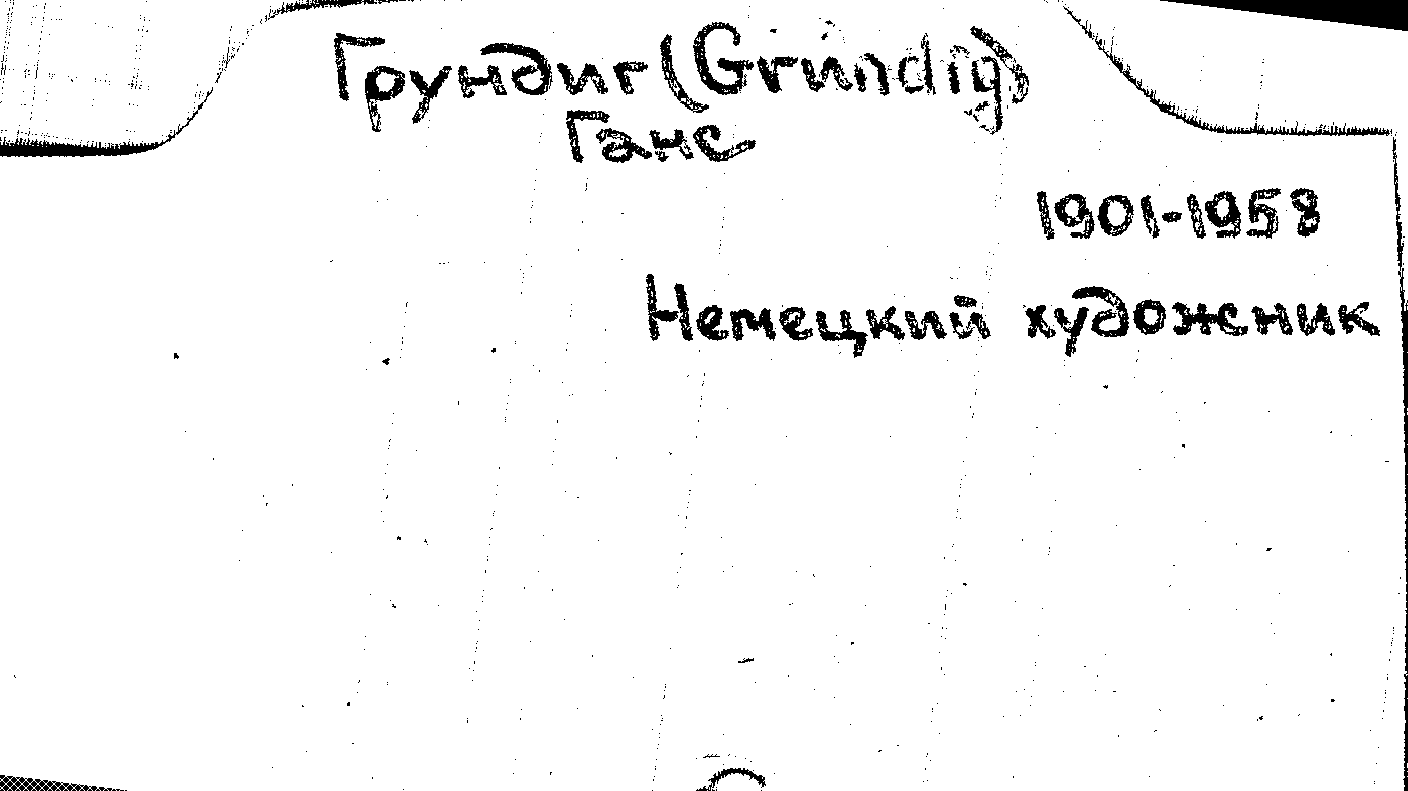 Грундиг (Grundig)
Ганс
1901-1958
Немецкий художник